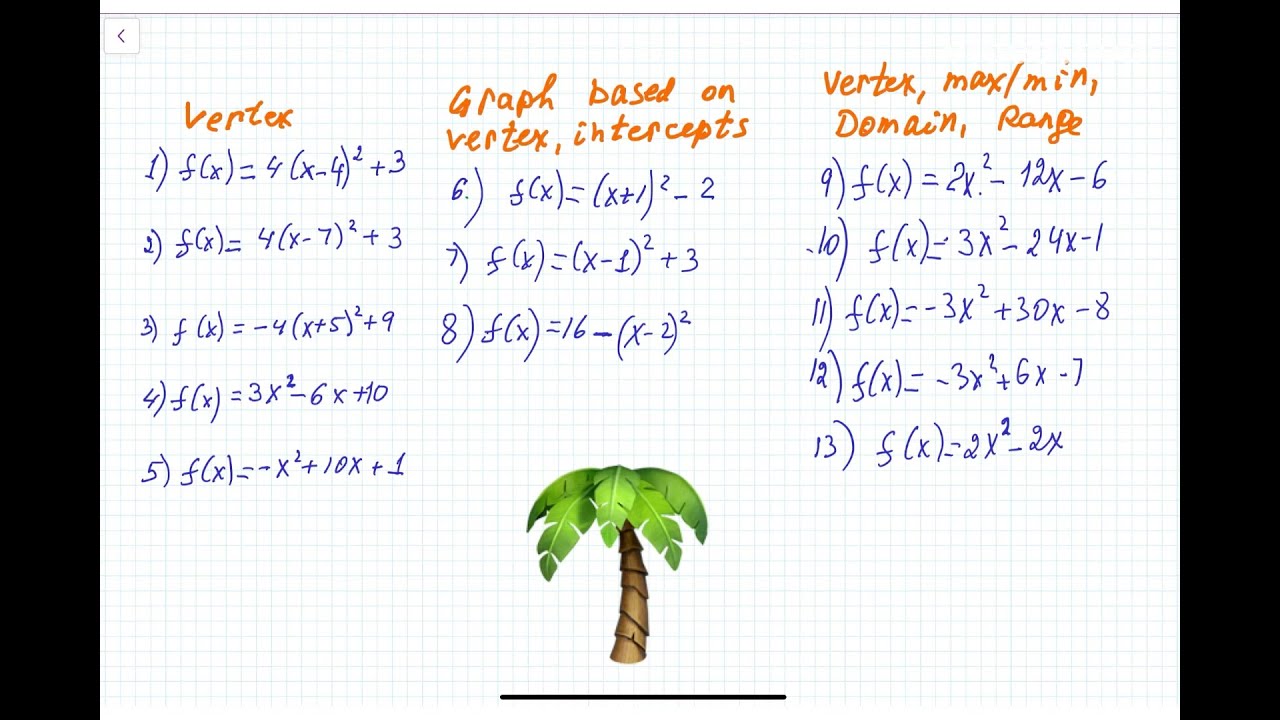 Vertex
1) f(x) = 4(x-4)² + 3
2) f(x) = 4(x-7)² + 3
3) f(x) = -4(x+5)² + 9
4) f(x) = 3x² - 6x + 10
5) f(x) = -x² + 10x + 1
Graph based on
vertex, intercepts
6.) f(x) = (x+1)² - 2
7) f(x) = (x-1)² + 3
8) f(x) = 16 - (x-2)²
Vertex, max/min,
Domain, Range
9) f(x) = 2x² - 12x - 6
10) f(x) = 3x² - 24x - 1
11) f(x) = -3x² + 30x - 8
12) f(x) = -3x² + 6x - 7
13) f(x) = 2x² - 2x